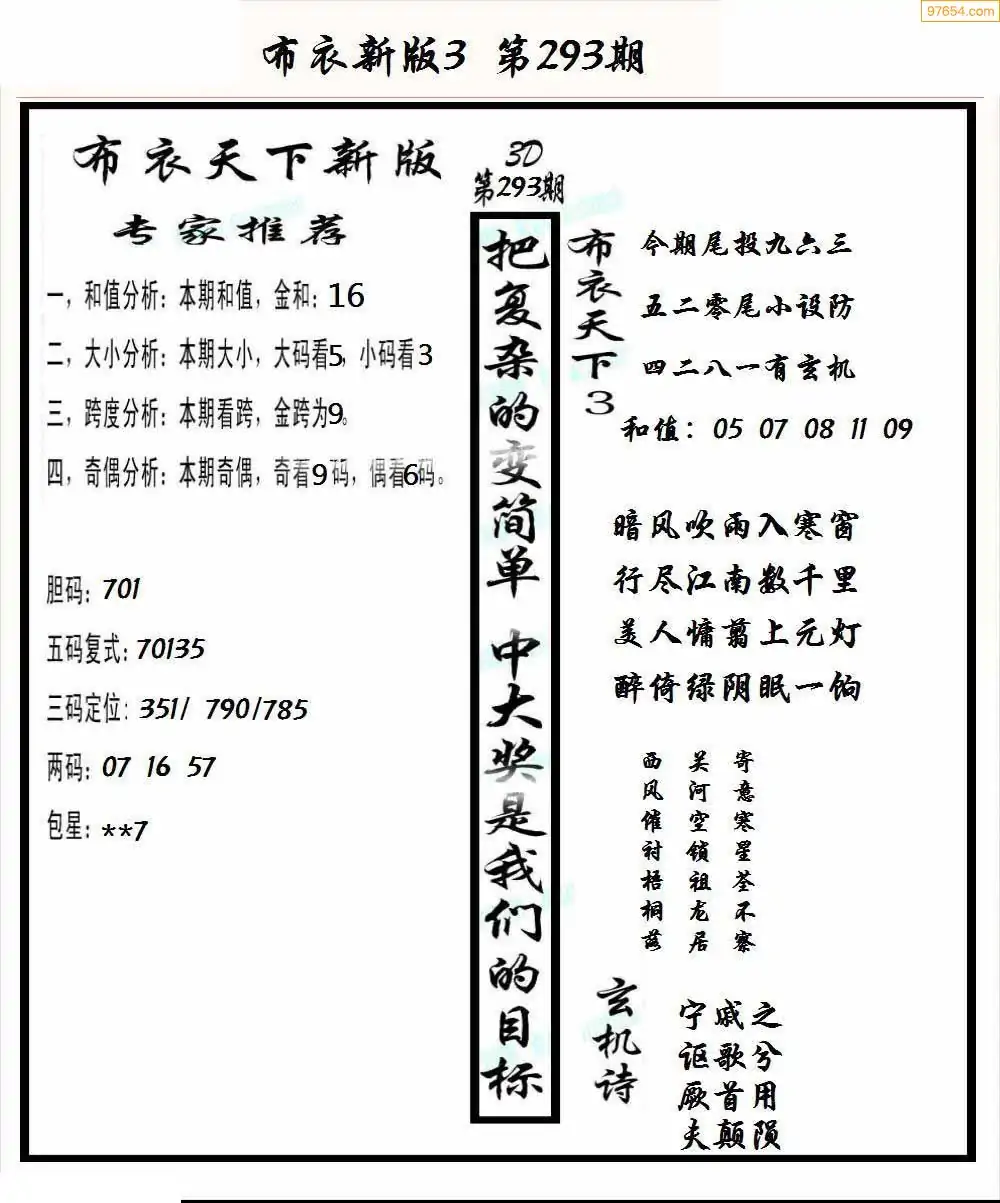 97654.com
布衣新版3 第293期
布衣天下新版
专家推荐
一，和值分析：本期和值，金和：16
二，大小分析：本期大小，大码看5，小码看3
三，跨度分析：本期看跨，金跨为9。
四，奇偶分析：本期奇偶，奇看9码，偶看6码。
胆码：701
五码复式：70135
三码定位：351/ 790/785
两码：07 16 57
包星：**7
3D
第293期
把复杂的变简单 中大奖是我们的目标
布衣天下3
今期尾投九六三
五二零尾小设防
四二八一有玄机
和值：05 07 08 11 09
暗风吹雨入寒窗
行尽江南数千里
美人慵翦上元灯
醉倚绿阴眠一饷
寄意寒星荃不察
关河空锁祖龙居
西风催衬梧桐落
玄机诗
宁戚之
讴歌兮
厥首用
夫颠陨